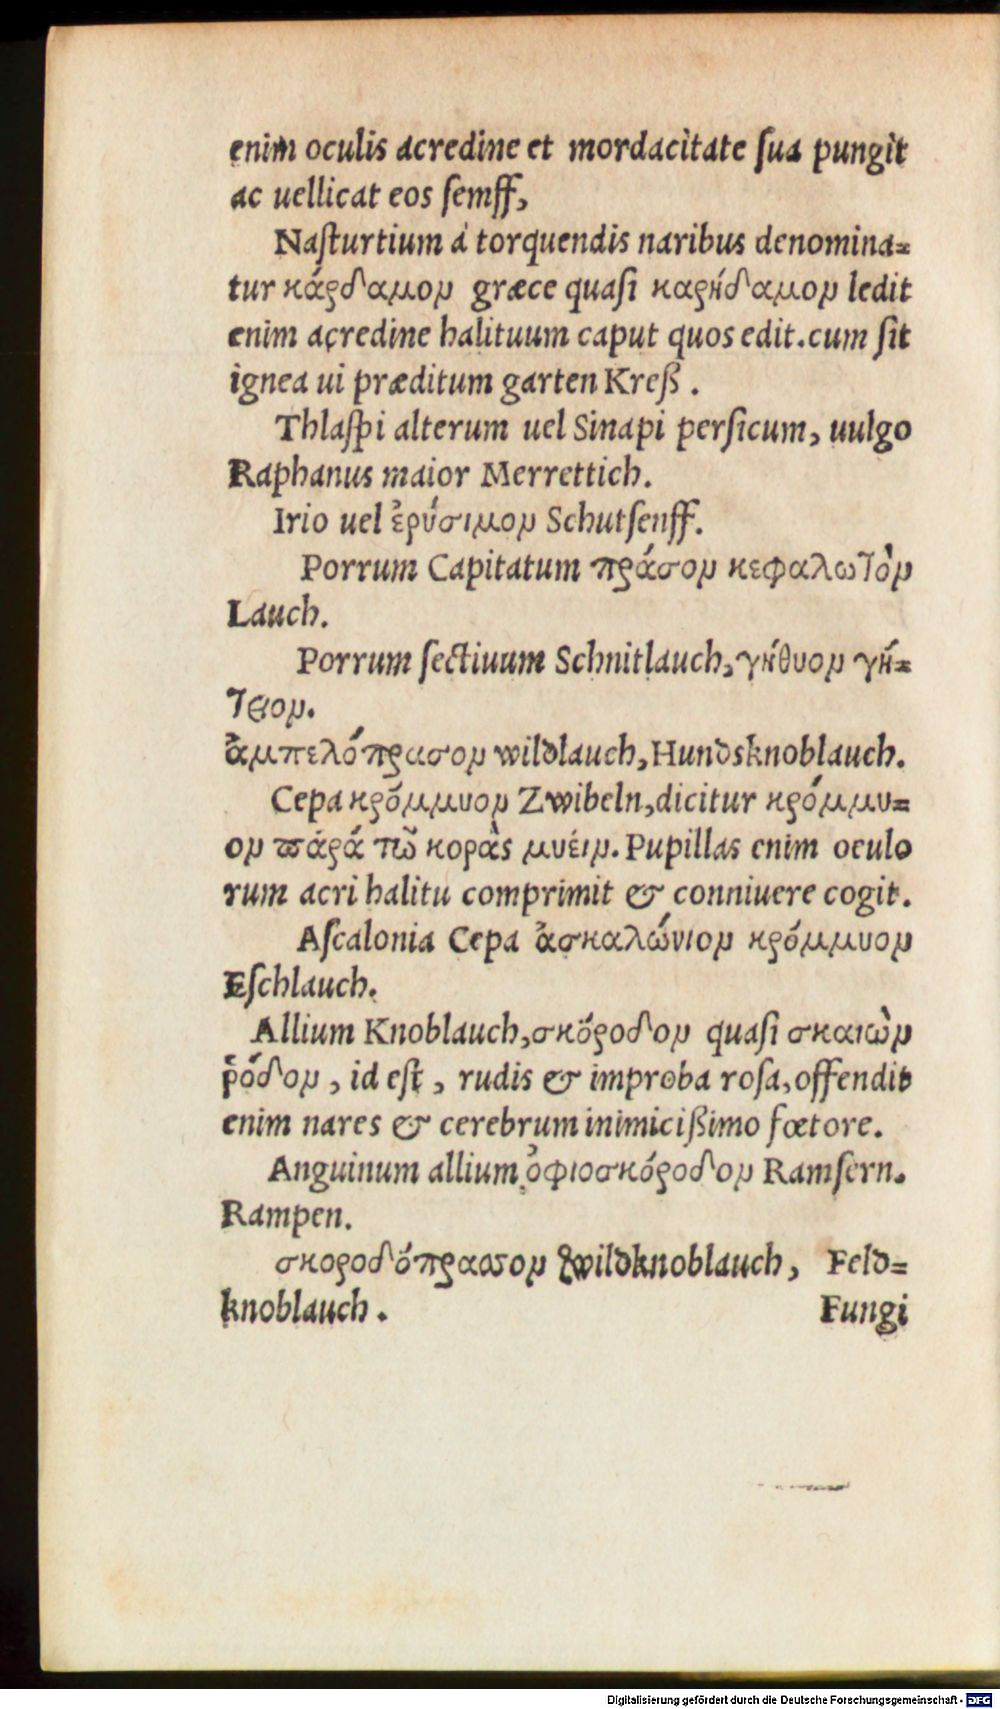 enim oculis acredine et mordacitate ſua pungit
ac uellicat eos ſemff,
Naſturtium à torquendis naribus denomina=
tur κάρδαμον græce quaſi καρήδαμον ledit
enim acredine halituum caput quos edit.cum ſit
ignea ui præditum garten Kreß .
Thlaſpi alterum uel Sinapi perſicum, uulgo
Raphanus maior Merrettich.
Irio uel ἐρύσιμον Schutſenff.
Porrum Capitatum πράσον κεφαλωτὸν
Lauch.
Porrum ſectiuum Schnitlauch, γήθυον γή=
τειον.
ἀμπελόπρασον wildlauch, Hundsknoblauch.
Cepa κρόμμυον Zwibeln, dicitur κρόμμυ=
ον παρά τῶ κορὰς μυέιν. Pupillas enim oculo
rum acri halitu comprimit & conniuere cogit.
Aſcalonia Cepa ἀσκαλώνιον κρόμμυον
Eſchlauch.
Allium Knoblauch, σκόροδον quaſi σκαιὼν
ῥόδον, id eſt, rudis & improba roſa, offendit
enim nares & cerebrum inimicißimo fœtore.
Anguinum allium ὀφιοσκόροδον Ramſern.
Rampen.
σκοροδόπρασον wildknoblauch, Feld=
knoblauch.
Fungi
Digitalisierung gefördert durch die Deutsche Forschungsgemeinschaft - DFG